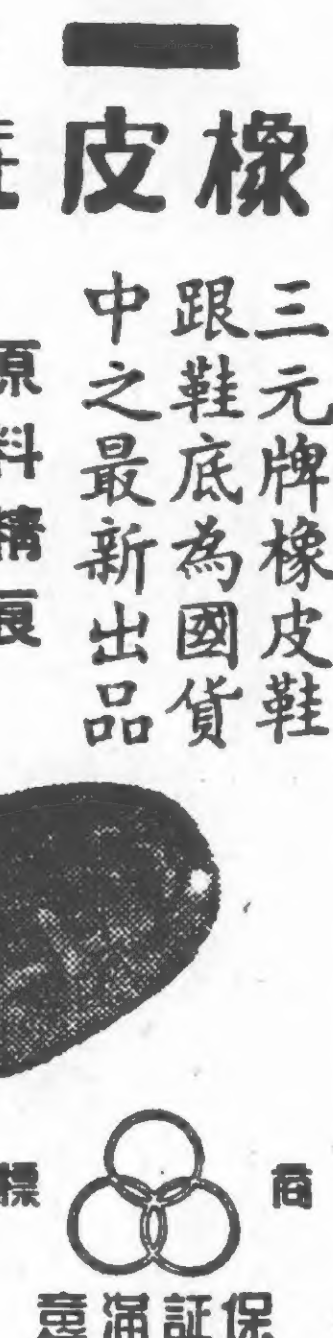 橡皮
三元牌橡皮鞋
跟鞋底為國貨
中之最新出品
原料精良
商標
保証滿意